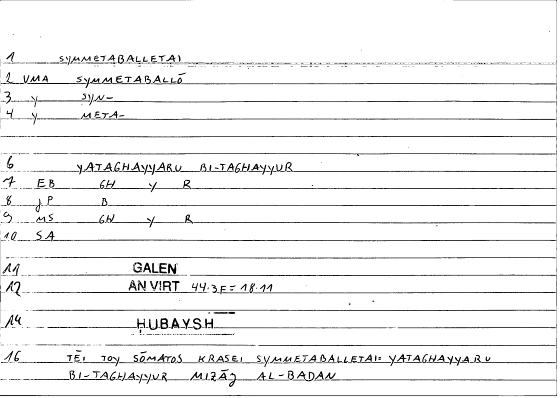 1 SYMMETABALLETAI
2 VMA SYMMETABALLŌ
3 Y SYN-
4 Y META-
6 YATAGHAYYARU BI-TAGHAYYUR
7 EB GH Y R
8 JP B
9 MS GH Y R
10 SA
11 GALEN
12 AN VIRT 44.3F = 18.11
14 ḤUBAYSH
16 TĒI TOY SŌMATOS KRASEI SYMMETABALLETAI= YATAGHAYYARU
BI-TAGHAYYUR MIZĀJ AL-BADAN